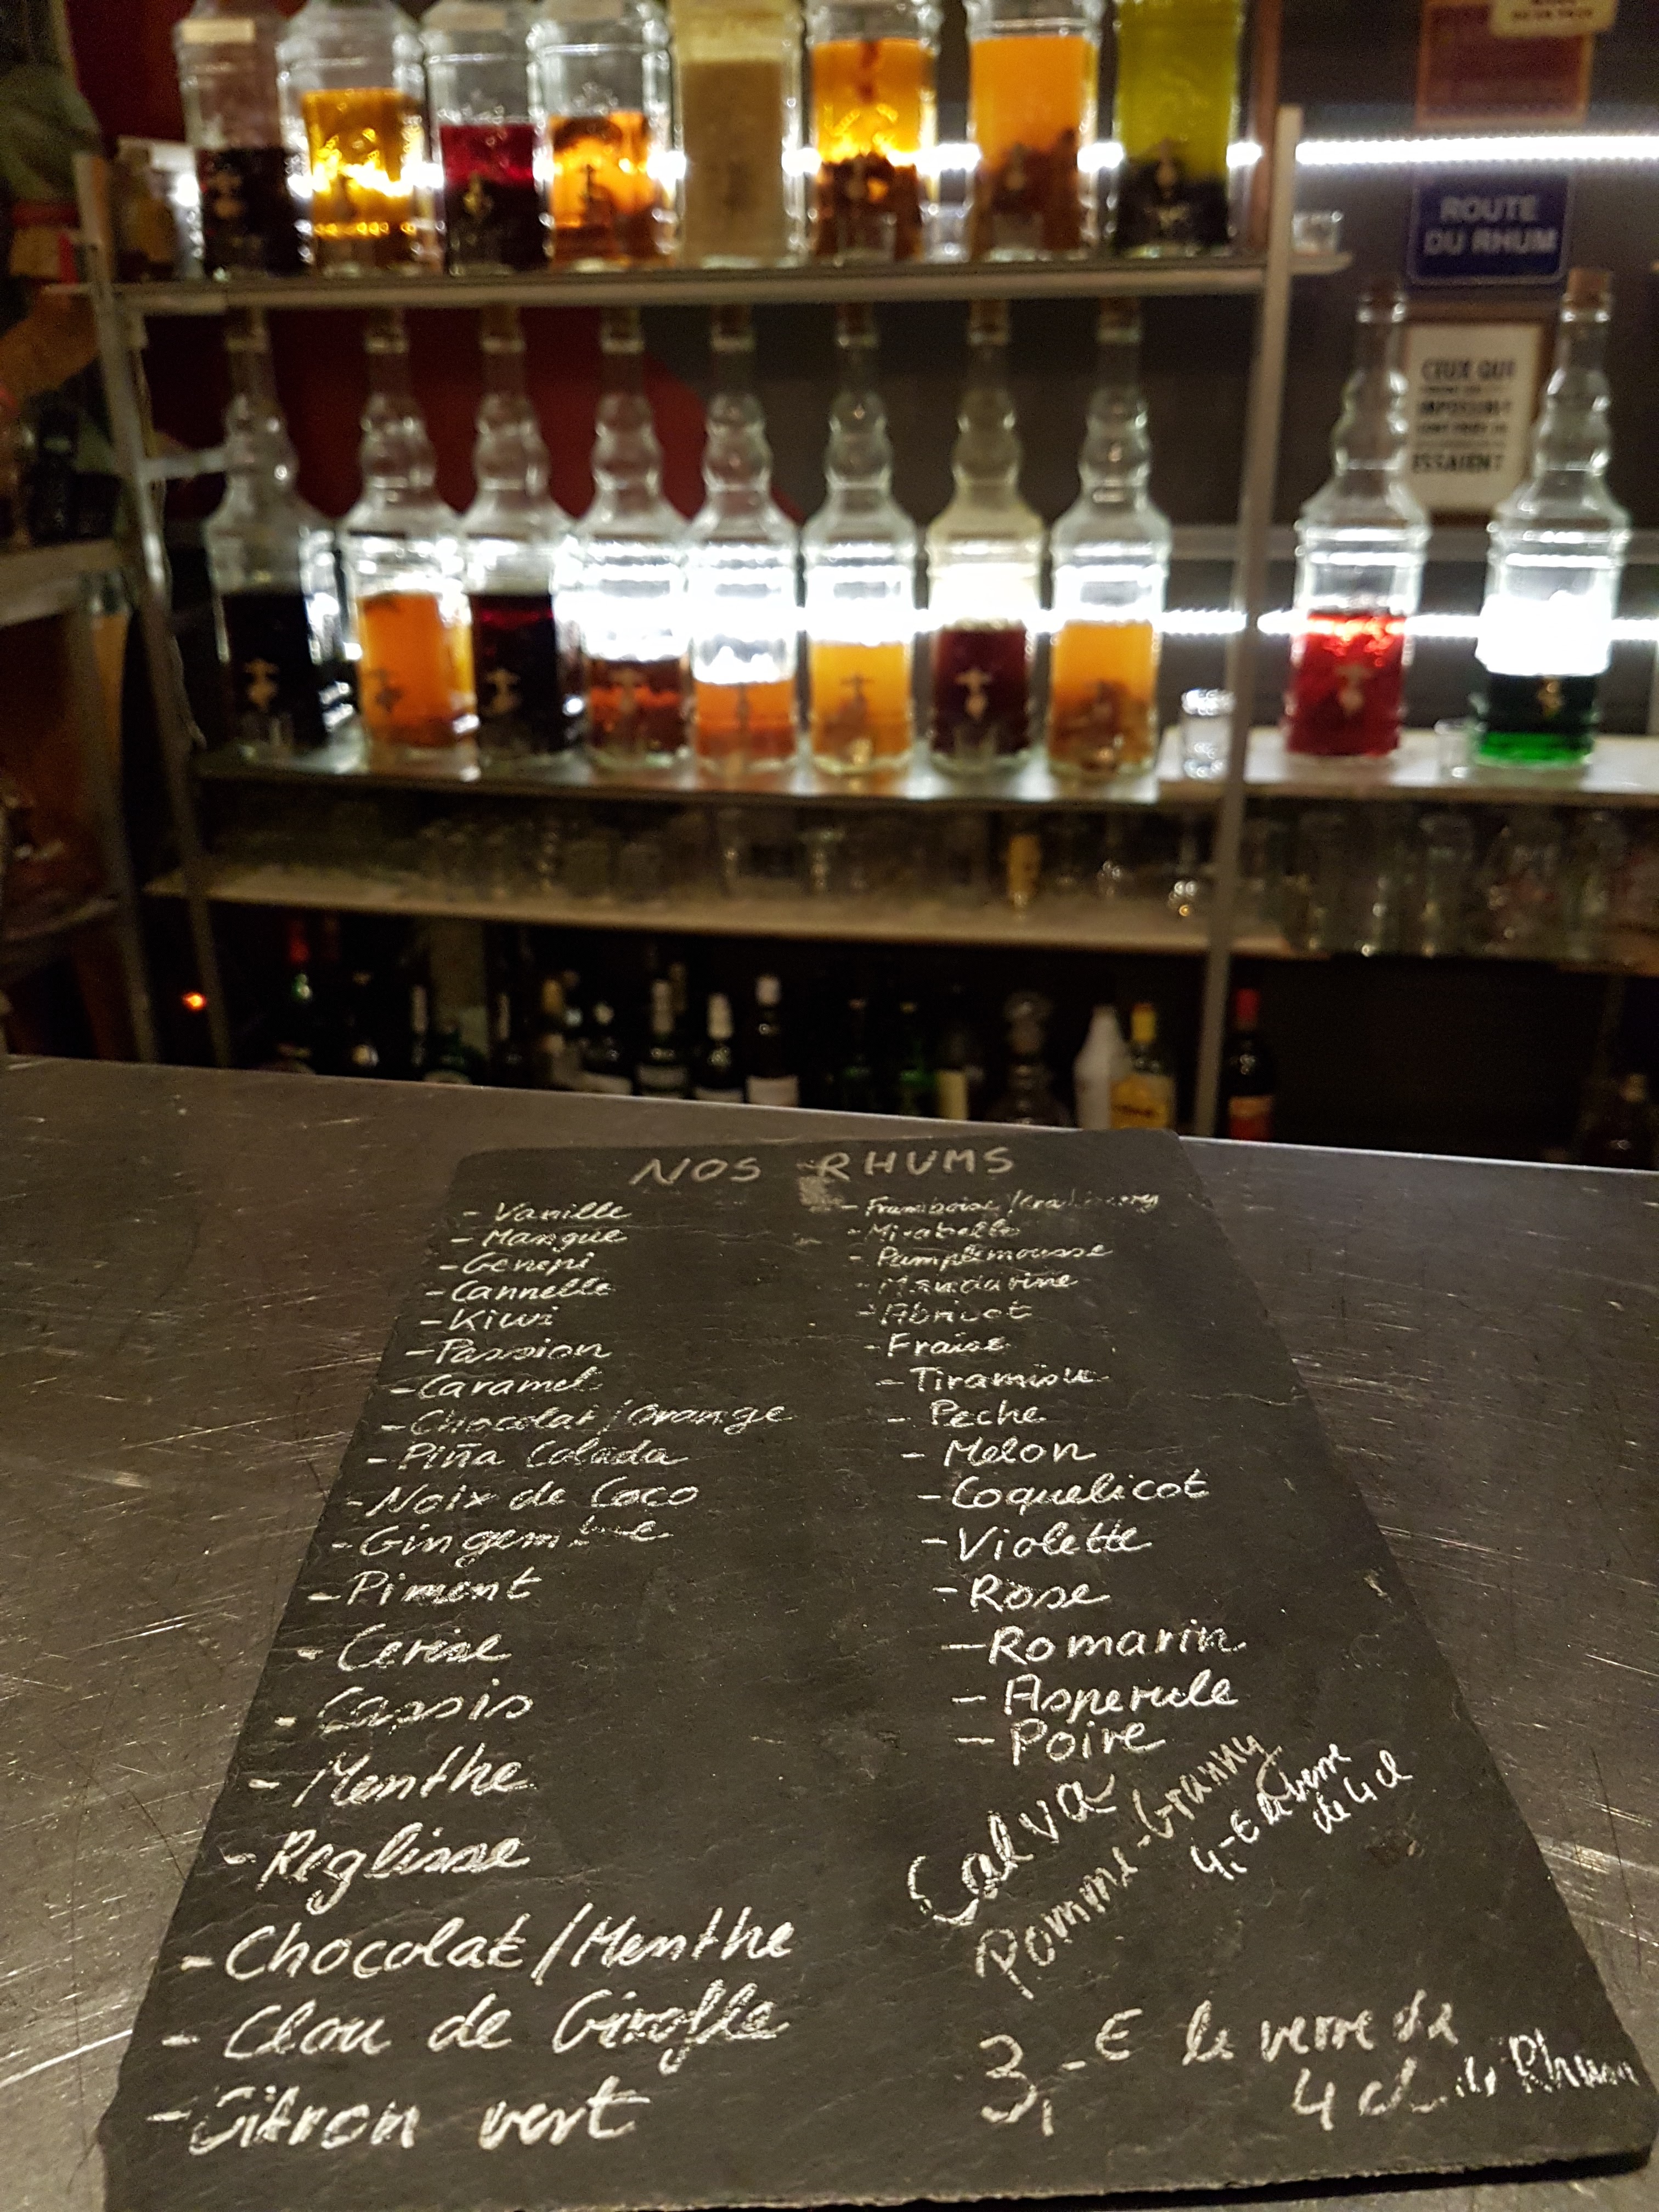 ROUTE
DU RHUM
CEUX QUI
ESSAIENT
NOS RHUMS
- Vanille
- Mangue
- Genepi
- Cannelle
- Kiwi
- Passion
- Caramel
- Chocolat/Orange
- Piña Colada
- Noix de Coco
- Gingembre
- Piment
- Cerise
- Cassis
- Menthe
- Reglisse
- Chocolat/Menthe
- Clou de Girofle
- Citron vert
- Framboise/Cranberry
- Mirabelle
- Pamplemousse
- Mandarine
- Abricot
- Fraise
- Tiramisu
- Peche
- Melon
- Coquelicot
- Violette
- Rose
- Romarin
- Asperule
- Poire
Calva
Pomme-Granny
4,-€ le verre
de 4 cl
3,-€ le verre de
4 cl de Rhum